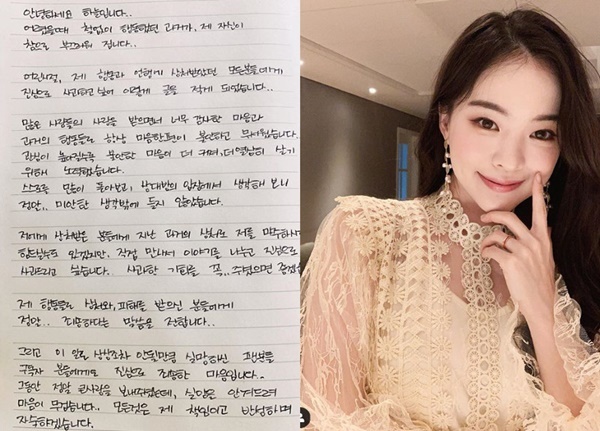 안녕하세요 하늘입니다..
어렸을때 철없이 행동했던 과거가, 제 자신이
참으로 부끄러워 집니다..
어린시절, 제 행동과 언행에 상처받았던 모든분들에게
진심으로 사과하고 싶어 이렇게 글을 적게 되었습니다..
많은 사람들의 사랑을 받으면서 너무 감사한 마음과
과거의 행동들로 항상 마음한편이 불안하고 무서웠습니다
관심이 높아질수록 불안한 마음이 더 커져, 더 열심히 살기
위해 노력했습니다.
스스로를 많이 돌아보고, 상대방의 입장에서 생각해 보니
정말.. 미안한 생각밖에 들지 않았습니다.
저에게 상처받은 분들에게 지난 과거의 상처로 저를 마주하시기
힘드실수도 있겠지만, 직접 만나서 이야기를 나누고 진심으로
사과드리고 싶습니다.. 사과할 기회를 꼭.. 주셨으면 좋겠습
제 행동들로 상처와, 피해를 받으신 분들에게
정말.. 죄송하다는 말씀을 전합니다..
그리고 이 일로 상상조차 안될만큼 실망하신 팬분들
구독자 분들에게도 진심으로 죄송한 마음입니다..
그동안 정말 큰사랑을 보내주셨는데, 실망을 안겨드려
마음이 무겁습니다.. 모든것은 제 책임이고 반성하며
자숙하겠습니다.